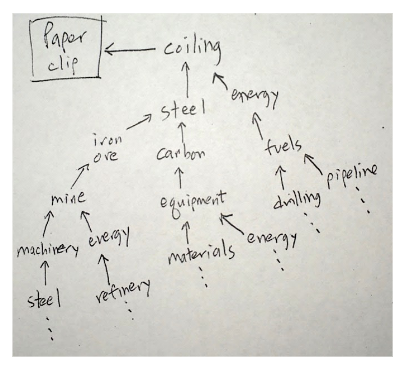 Paper
clip
coiling
steel
energy
iron
ore
carbon
fuels
mine
equipment
drilling
pipeline
machinery
energy
materials
energy
steel
refinery